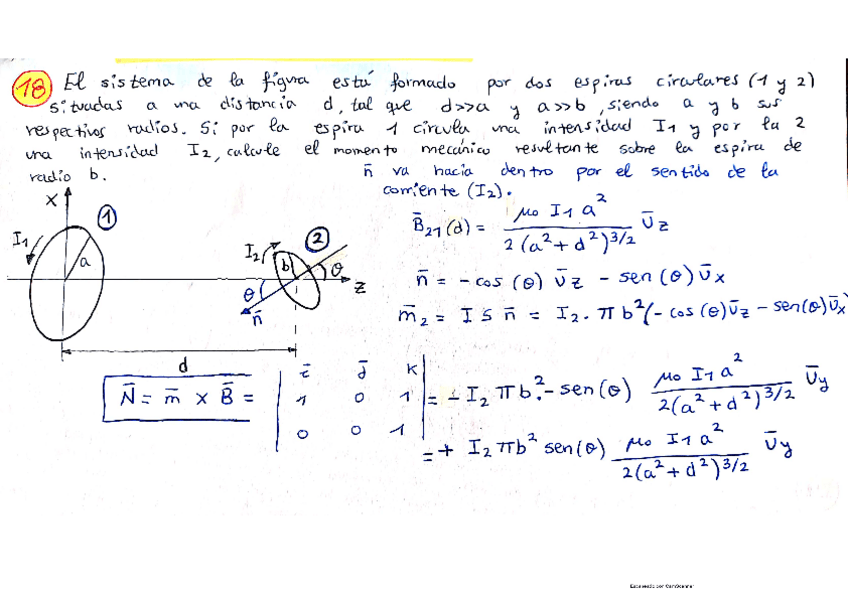 18 El sistema de la figura está formado por dos espiras circulares (1 y 2)
situadas a una distancia d, tal que d>>a y a>>b, siendo a y b sus
respectivos radios. Si por la espira 1 circula una intensidad I₁ y por la 2
una intensidad I₂, calcule el momento mecánico resultante sobre la espira de
radio b.
n̄ va hacia dentro por el sentido de la
corriente (I₂).
X
1
I₁
a
I₂
b
2
θ
θ
n̄
Z
d
B̄₂₁(d) = μ₀ I₁ a² / 2(a² + d²)^3/2 Ūz
n̄ = - cos (θ) Ūz - sen (θ) Ūx
m̄₂ = I S n̄ = I₂ · π b² (- cos (θ) Ūz - sen(θ) Ūx
N̄ = m̄ x B̄ = | ī j̄ k
1 0 1
0 0 1 | = - I₂ π b² · - sen(θ) μ₀ I₁ a² / 2(a² + d²)^3/2 Ūy
= + I₂ π b² sen(θ) μ₀ I₁ a² / 2(a² + d²)^3/2 Ūy
Escaneado con CamScanner